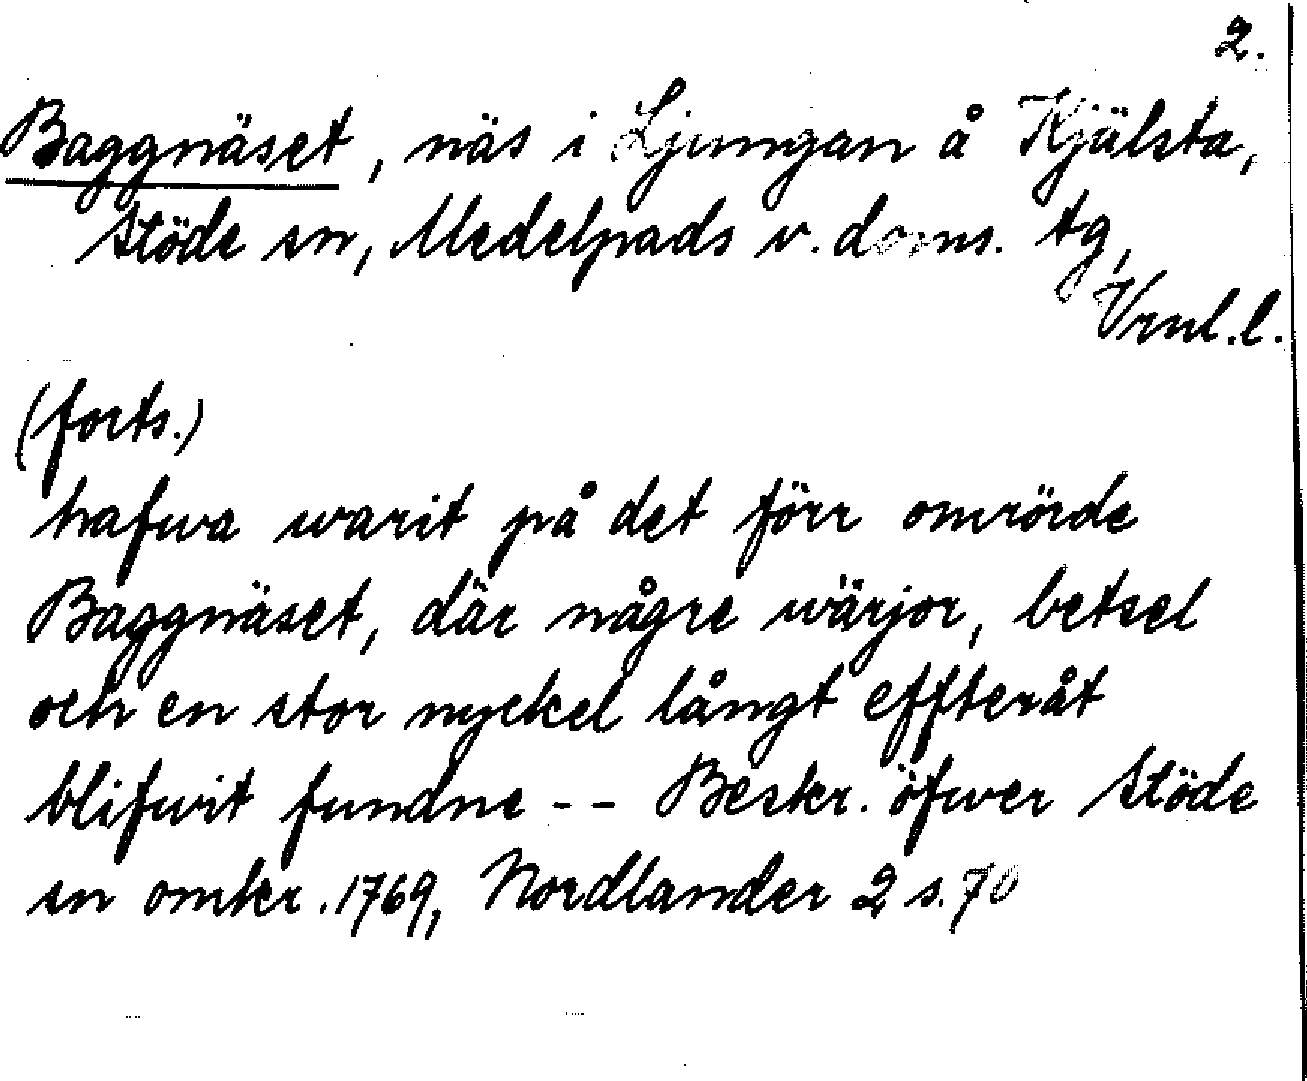 2.
Baggnäset, näs i Ljungan å Kjälsta,
Stöde sn, Medelpads v. doms. tg,
Vrnl.l.
(forts.)
hafwa warit på det förr omrörde
Baggnäset, där någre wärjor, betsel
och en stor nyckel långt effteråt
blifwit fundne -- Beskr. öfwer Stöde
sn omkr. 1769, Nordlander 2 s. 70